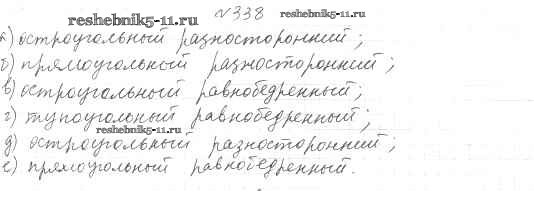 reshebnik5-11.ru №338 reshebnik5-11.ru
а) остроугольный разносторонний;
б) прямоугольный разносторонний;
в) остроугольный равнобедренный;
г) тупоугольный равнобедренный;
reshebnik5-11.ru
д) остроугольный разносторонний;
е) прямоугольный равнобедренный.